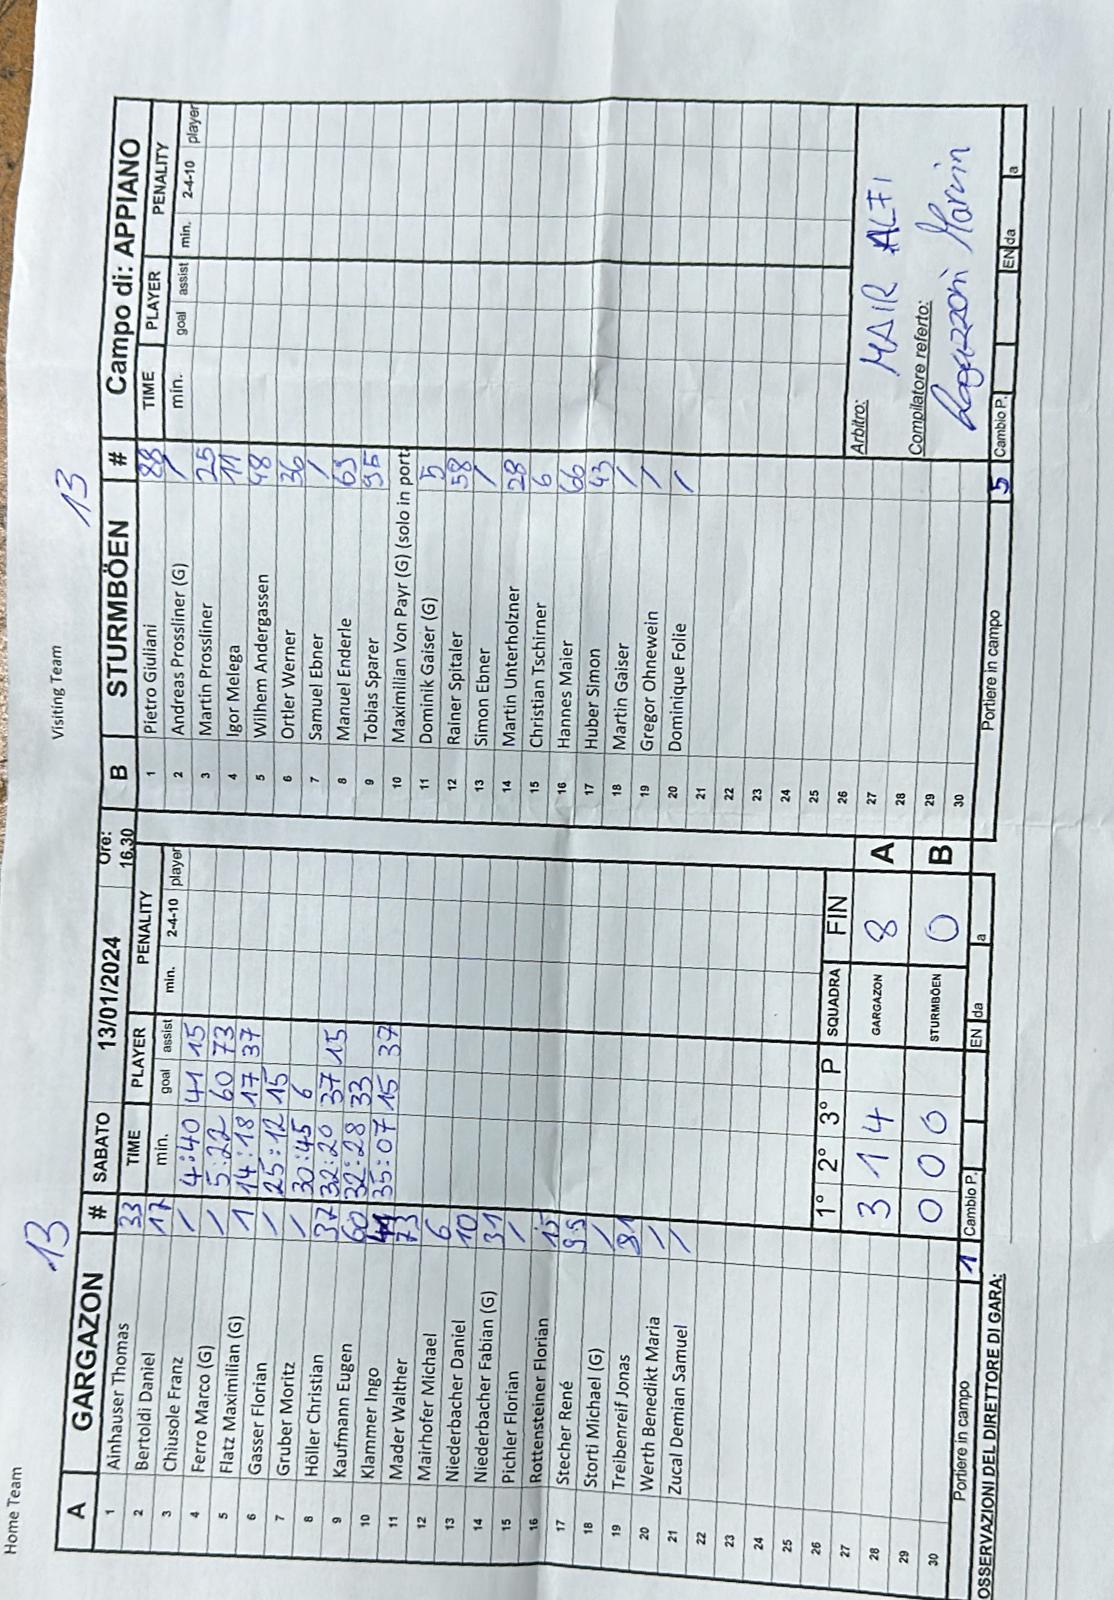 Home Team
13
Visiting Team
13
A GARGAZON # SABATO 13/01/2024 Ore: 16.30
TIME PLAYER PENALITY
min. goal assist min. 2-4-10 player
1 Ainhauser Thomas 33
2 Bertoldi Daniel 17
3 Chiusole Franz /
4 Ferro Marco (G) /
5 Flatz Maximilian (G) 1
6 Gasser Florian /
7 Gruber Moritz /
8 Höller Christian 37
9 Kaufmann Eugen 60
10 Klammster Ingo 41
11 Mader Walther 73
12 Mairhofer Michael 6
13 Niederbacher Daniel 10
14 Niederbacher Fabian (G) 31
15 Pichler Florian /
16 Rottensteiner Florian 15
17 Stecher René 99
18 Storti Michael (G) /
19 Treibenreif Jonas 81
20 Werth Benedikt Maria /
21 Zucal Demian Samuel /
22
23
24
25
26
27
28
29
30
4:40 41 15
5:22 60 73
14:18 17 37
25:12 15
30:45 6
32:20 37 15
32:28 33
35:07 15 37
1° 2° 3° P SQUADRA FIN
3 1 4 GARGAZON 8 A
0 0 0 STURMBÖEN 0 B
Portiere in campo 1 Cambio P. EN da a
OSSERVAZIONI DEL DIRETTORE DI GARA:
B STURMBÖEN # Campo di: APPIANO
TIME PLAYER PENALITY
min. goal assist min. 2-4-10 player
1 Pietro Giuliani 88
2 Andreas Prossliner (G) /
3 Martin Prossliner 25
4 Igor Melega 11
5 Wilhem Andergassen 48
6 Ortler Werner 36
7 Samuel Ebner /
8 Manuel Enderle 69
9 Tobias Sparer 95
10 Maximilian Von Payr (G) (solo in porta
11 Dominik Gaiser (G) 5
12 Rainer Spitaler 58
13 Simon Ebner /
14 Martin Unterholzner 28
15 Christian Tschirner 6
16 Hannes Maier 66
17 Huber Simon 43
18 Martin Gaiser /
19 Gregor Ohnewein /
20 Dominique Folie /
21
22
23
24
25
26
27
28
29
30
Arbitro: MAIR ALFI
Compilatore referto:
Ragazzoni Marvin
Portiere in campo 5 Cambio P. EN da a